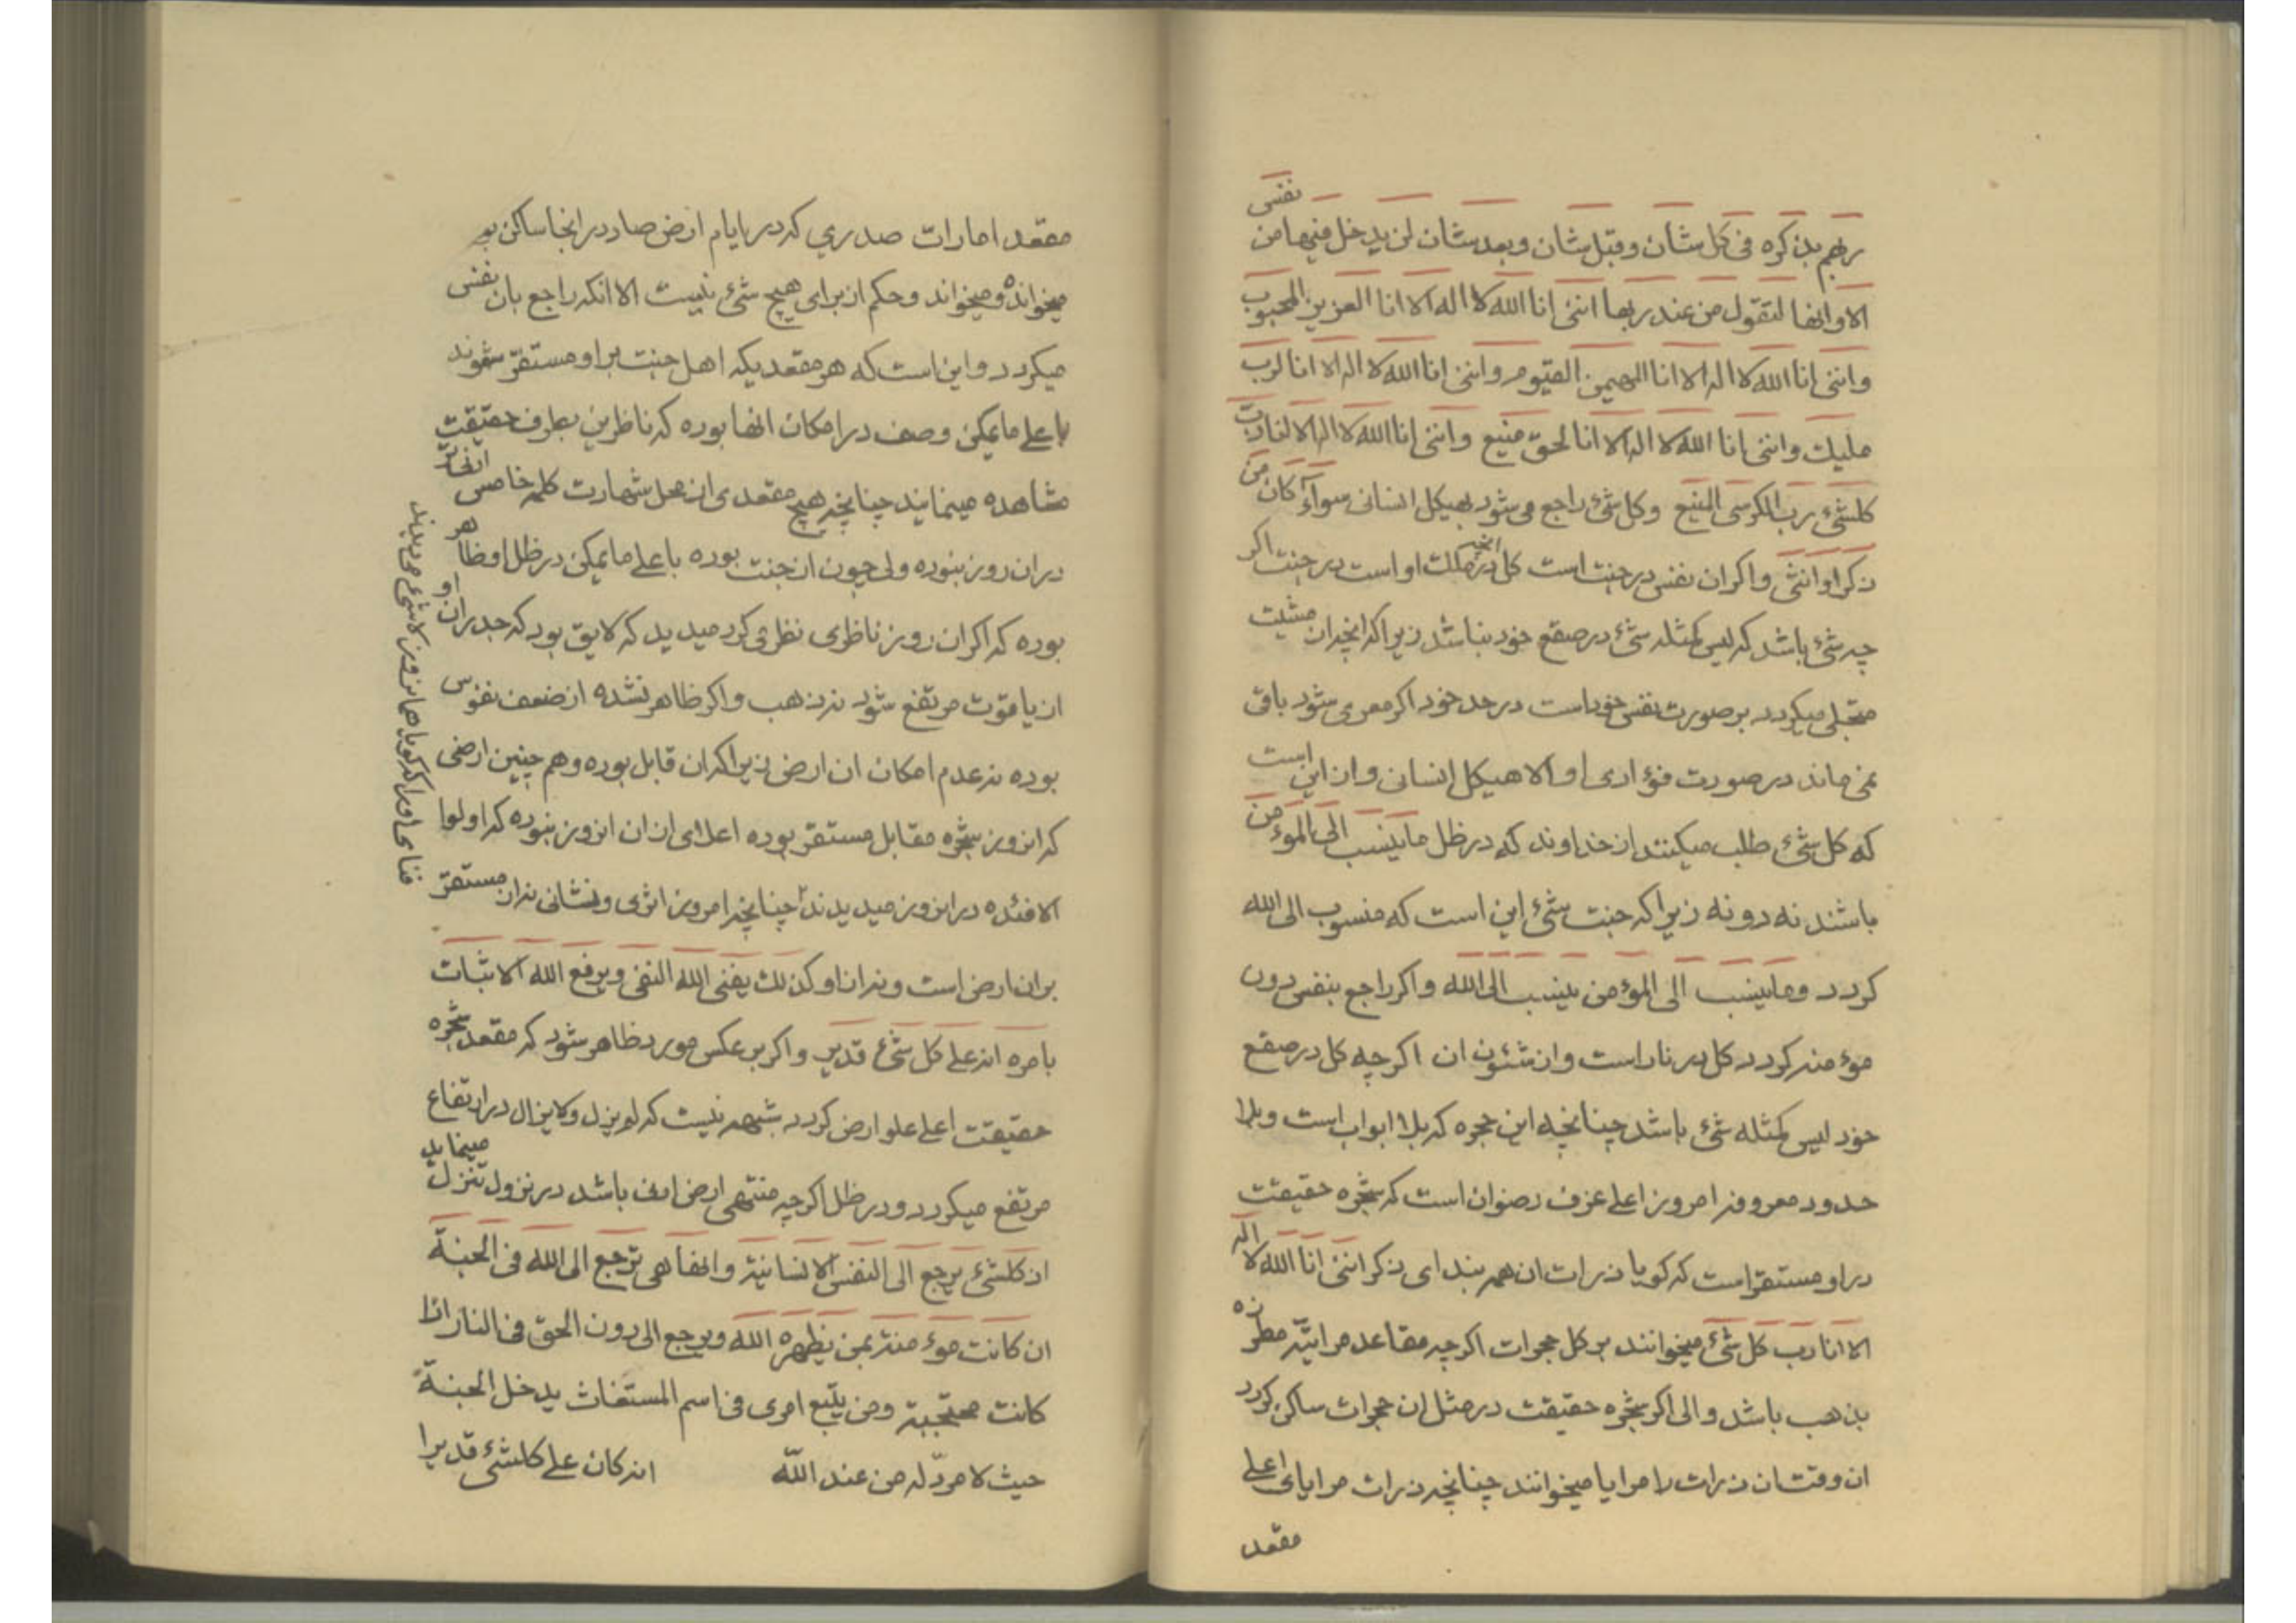 ربهم بذكره فی كل شان وقبل شان وبعد شان لن يدخل فيها من نفس
الا وانها لتقول من عند ربها اننی انا الله لا اله الا انا العزيز المحبوب
واننی انا الله لا اله الا انا المهيمن القيوم واننی انا الله لا اله الا انا لرب
مليك واننی انا الله لا اله الا انا لحق منيع واننی انا الله لا اله الا انا رب
كلشئ رب الكرسی المنيع وكل شئ راجع می شود بهيكل انسانی سوآء كان من
ذكر او انثی واكر ان نفس در جنت است كل انچه در ملك او است در جنت اكر
چه شئ باشد كه ليس كمثله شئ در صقع خود نباشد زيرا كه انچه ان مشيت
متجلی ميكردد بر صورت نفس خود است در حد خود اكر معری شود باقی
نمی ماند در صورت فؤادی او الا هيكل انسانی و از اين است
كه كل شئ طلب ميكنند از خداوند كه در ظل ما ينسب الی المؤمن
باشند نه دونه زيرا كه جنت شئ اين است كه منسوب الی الله
كردد وما ينسب الی المؤمن ينسب الی الله واكر راجع بنفس دون
مؤمنه كردد كل در نار است وان شئون ان اكرچه كل در صقع
خود ليس كمثله شئ باشد چنانچه اين حجره كه بلا ابواب است وبلا
حدود معروفه امروز اعلی غرف رضوان است كه شجره حقيقت
در او مستقر است كه كويا ذرات ان همه بندای ذكر اننی انا الله لا اله
الا انا رب كل شئ ميخوانند بر كل حجرات اكرچه مقاعد مراتيه مطرزه
بذهب باشد والی اكر شجره حقيقت در مثل ان حجرات ساكن كردد
ان وقت ان ذرات را مرايا ميخوانند چنانچه ذرات مرايای اعلی
مقعد
مقعد امارات صدری كه در ايام ارض صاد در انجا ساكن بوده
ميخوانده و ميخواند و حكم از برای هيچ شئ نيست الا انكه راجع بان نفس
ميكردد واين است كه هر مقعديكه اهل جنت بر او مستقر شوند
با علی ما يمكن وصف در امكان انها بوده كه ناظرين بطرف حقيقت
مشاهده مينمايند چنانچه هيچ مقعدی از محل شهادت كلمه خامس انجا تر
در ان روز نبوده ولی چون از جنت بوده با علی ما يمكن در ظل او ظاهر
بوده كه اكر ان روز ناظری نظر می كرد ميديد كه لايق بود كه جدران او
از ياقوت مرتفع شود نه ذهب واكر ظاهر نشده از ضعف نفوس
بوده نه عدم امكان ان ارض زيرا كه ان قابل بوده وهم چنين ارضی
كه انروز شجره مقابل مستقر بوده اعلای از ان انروز نبوده كه اولوا
الافئده در انروز ميديدند چنانچه امروز اثری ونشانی نه از مستقر
فنای او را كه كويا همانروز لا شئ می ديدند
بر ان ارض است ونه از او كذلك يفنی الله النفی ويرفع الله الاثبات
بامره انه علی كل شئ قدير واكر بر عكس مورد ظاهر شود كه مقعد شجره
حقيقت اعلی علو ارض كردد شبهه نيست كه لم يزل ولا يزال در ارتفاع
مرتفع ميكردد ودر ظل اكرچه منتهی ارض اف باشد در نزول تنزل مينمايد
ان كلشئ يرجع الی النفس الانسانية وانها هی ترجع الی الله فی الجنة
ان كانت مؤمنة بمن يظهره الله ويرجع الی دون الحق فی النار اذا
كانت محتجبة ومن يتبع امری فی اسم المستغاث يدخل الجنة
حيث لا مرد له من عند الله انه كان علی كلشئ قديرا